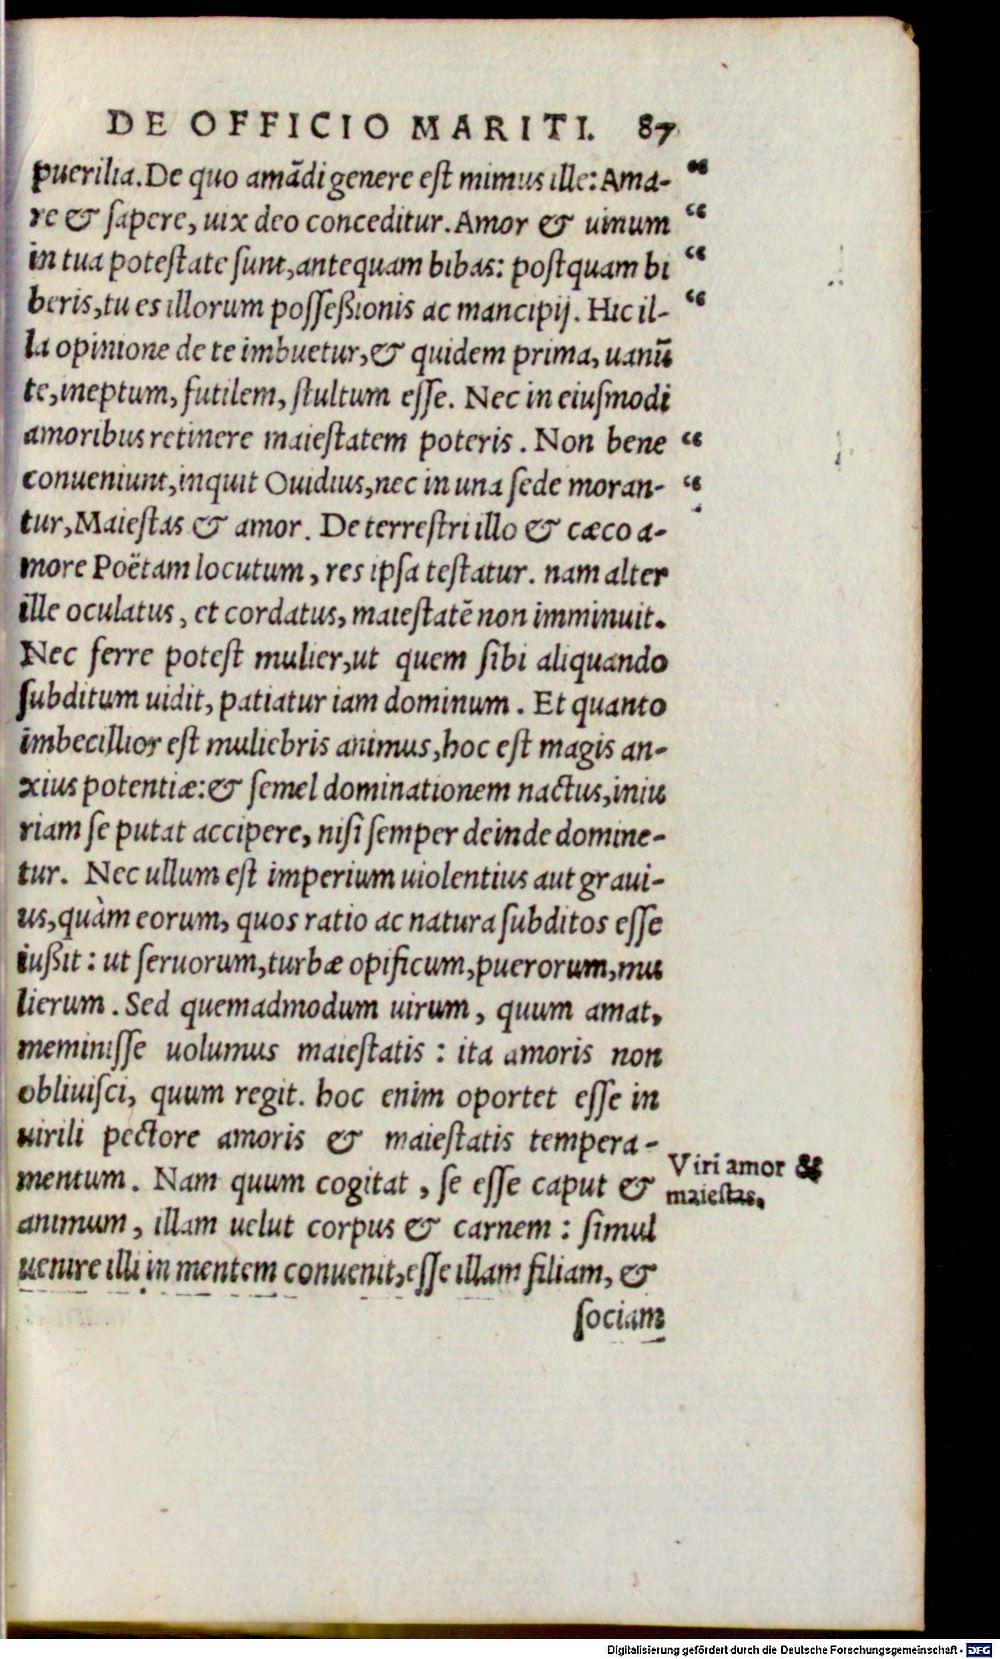 DE OFFICIO MARITI. 87
puerilia. De quo amādi genere eſt mimus ille: Ama- “
re & ſapere, uix deo conceditur. Amor & uinum “
in tua poteſtate ſunt, antequam bibas: poſtquam bi “
beris, tu es illorum poſſeßionis ac mancipij. Hic il- “
la opinione de te imbuetur, & quidem prima, uanū
te, ineptum, futilem, ſtultum eſſe. Nec in eiuſmodi
amoribus retinere maieſtatem poteris. Non bene “
conueniunt, inquit Ouidius, nec in una ſede moran- “
tur, Maieſtas & amor. De terreſtri illo & cæco a-
more Poëtam locutum, res ipſa teſtatur. nam alter
ille oculatus, et cordatus, maieſtatē non imminuit.
Nec ferre poteſt mulier, ut quem ſibi aliquando
ſubditum uidit, patiatur iam dominum. Et quanto
imbecillior eſt muliebris animus, hoc eſt magis an-
xius potentiæ: & ſemel dominationem nactus, iniu
riam ſe putat accipere, niſi ſemper deinde domine-
tur. Nec ullum eſt imperium uiolentius aut graui-
us, quàm eorum, quos ratio ac natura ſubditos eſſe
iußit: ut ſeruorum, turbæ opificum, puerorum, mu
lierum. Sed quemadmodum uirum, quum amat,
meminiſſe uolumus maieſtatis: ita amoris non
obliuiſci, quum regit. hoc enim oportet eſſe in
uirili pectore amoris & maieſtatis tempera-
mentum. Nam quum cogitat, ſe eſſe caput &
animum, illam uelut corpus & carnem: ſimul
uenire illi in mentem conuenit, eſſe illam filiam, &
ſociam
Viri amor &
maieſtas.
Digitalisierung gefördert durch die Deutsche Forschungsgemeinschaft - DFG